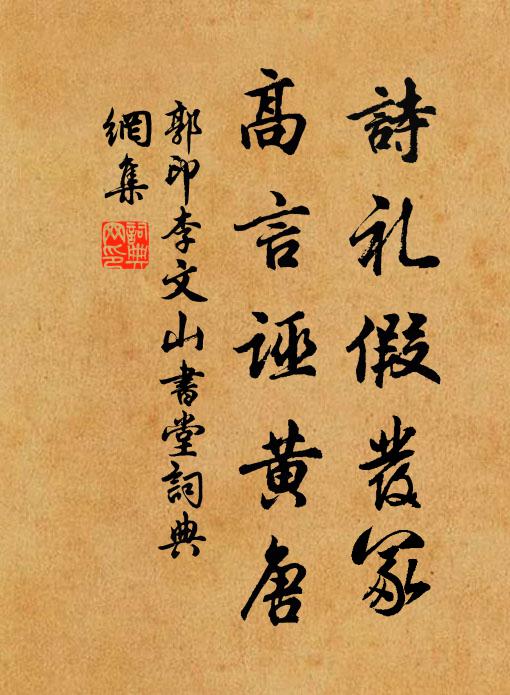 詩礼假發冢
高言誣黄唐
郭印李文山書堂詞典
網集
詞典
网印